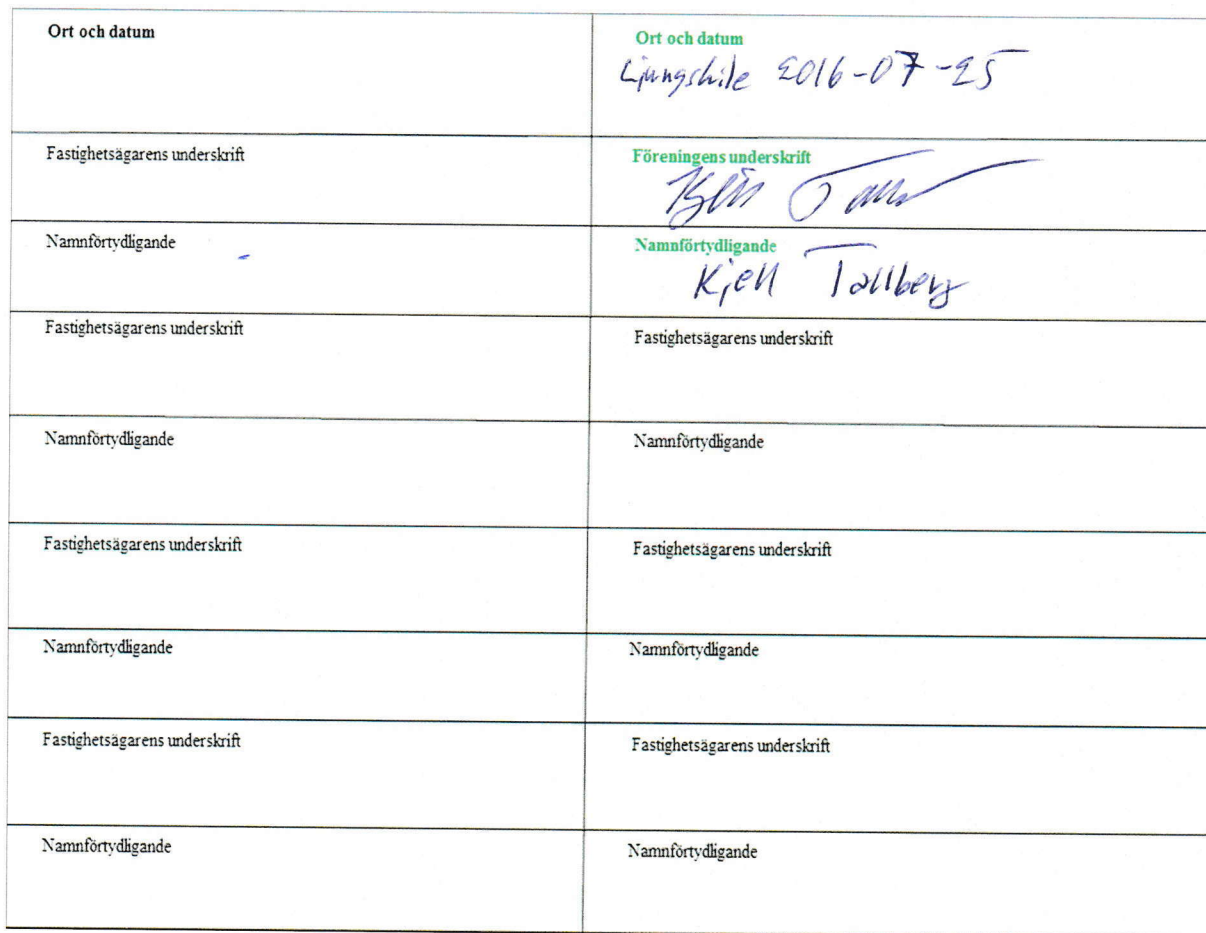 Ort och datum
Ort och datum
Ljungskile 2016-07-25
Fastighetsägarens underskrift
Föreningens underskrift
Namnförtydligande
Namnförtydligande
Kjell Tallberg
Fastighetsägarens underskrift
Fastighetsägarens underskrift
Namnförtydligande
Namnförtydligande
Fastighetsägarens underskrift
Fastighetsägarens underskrift
Namnförtydligande
Namnförtydligande
Fastighetsägarens underskrift
Fastighetsägarens underskrift
Namnförtydligande
Namnförtydligande